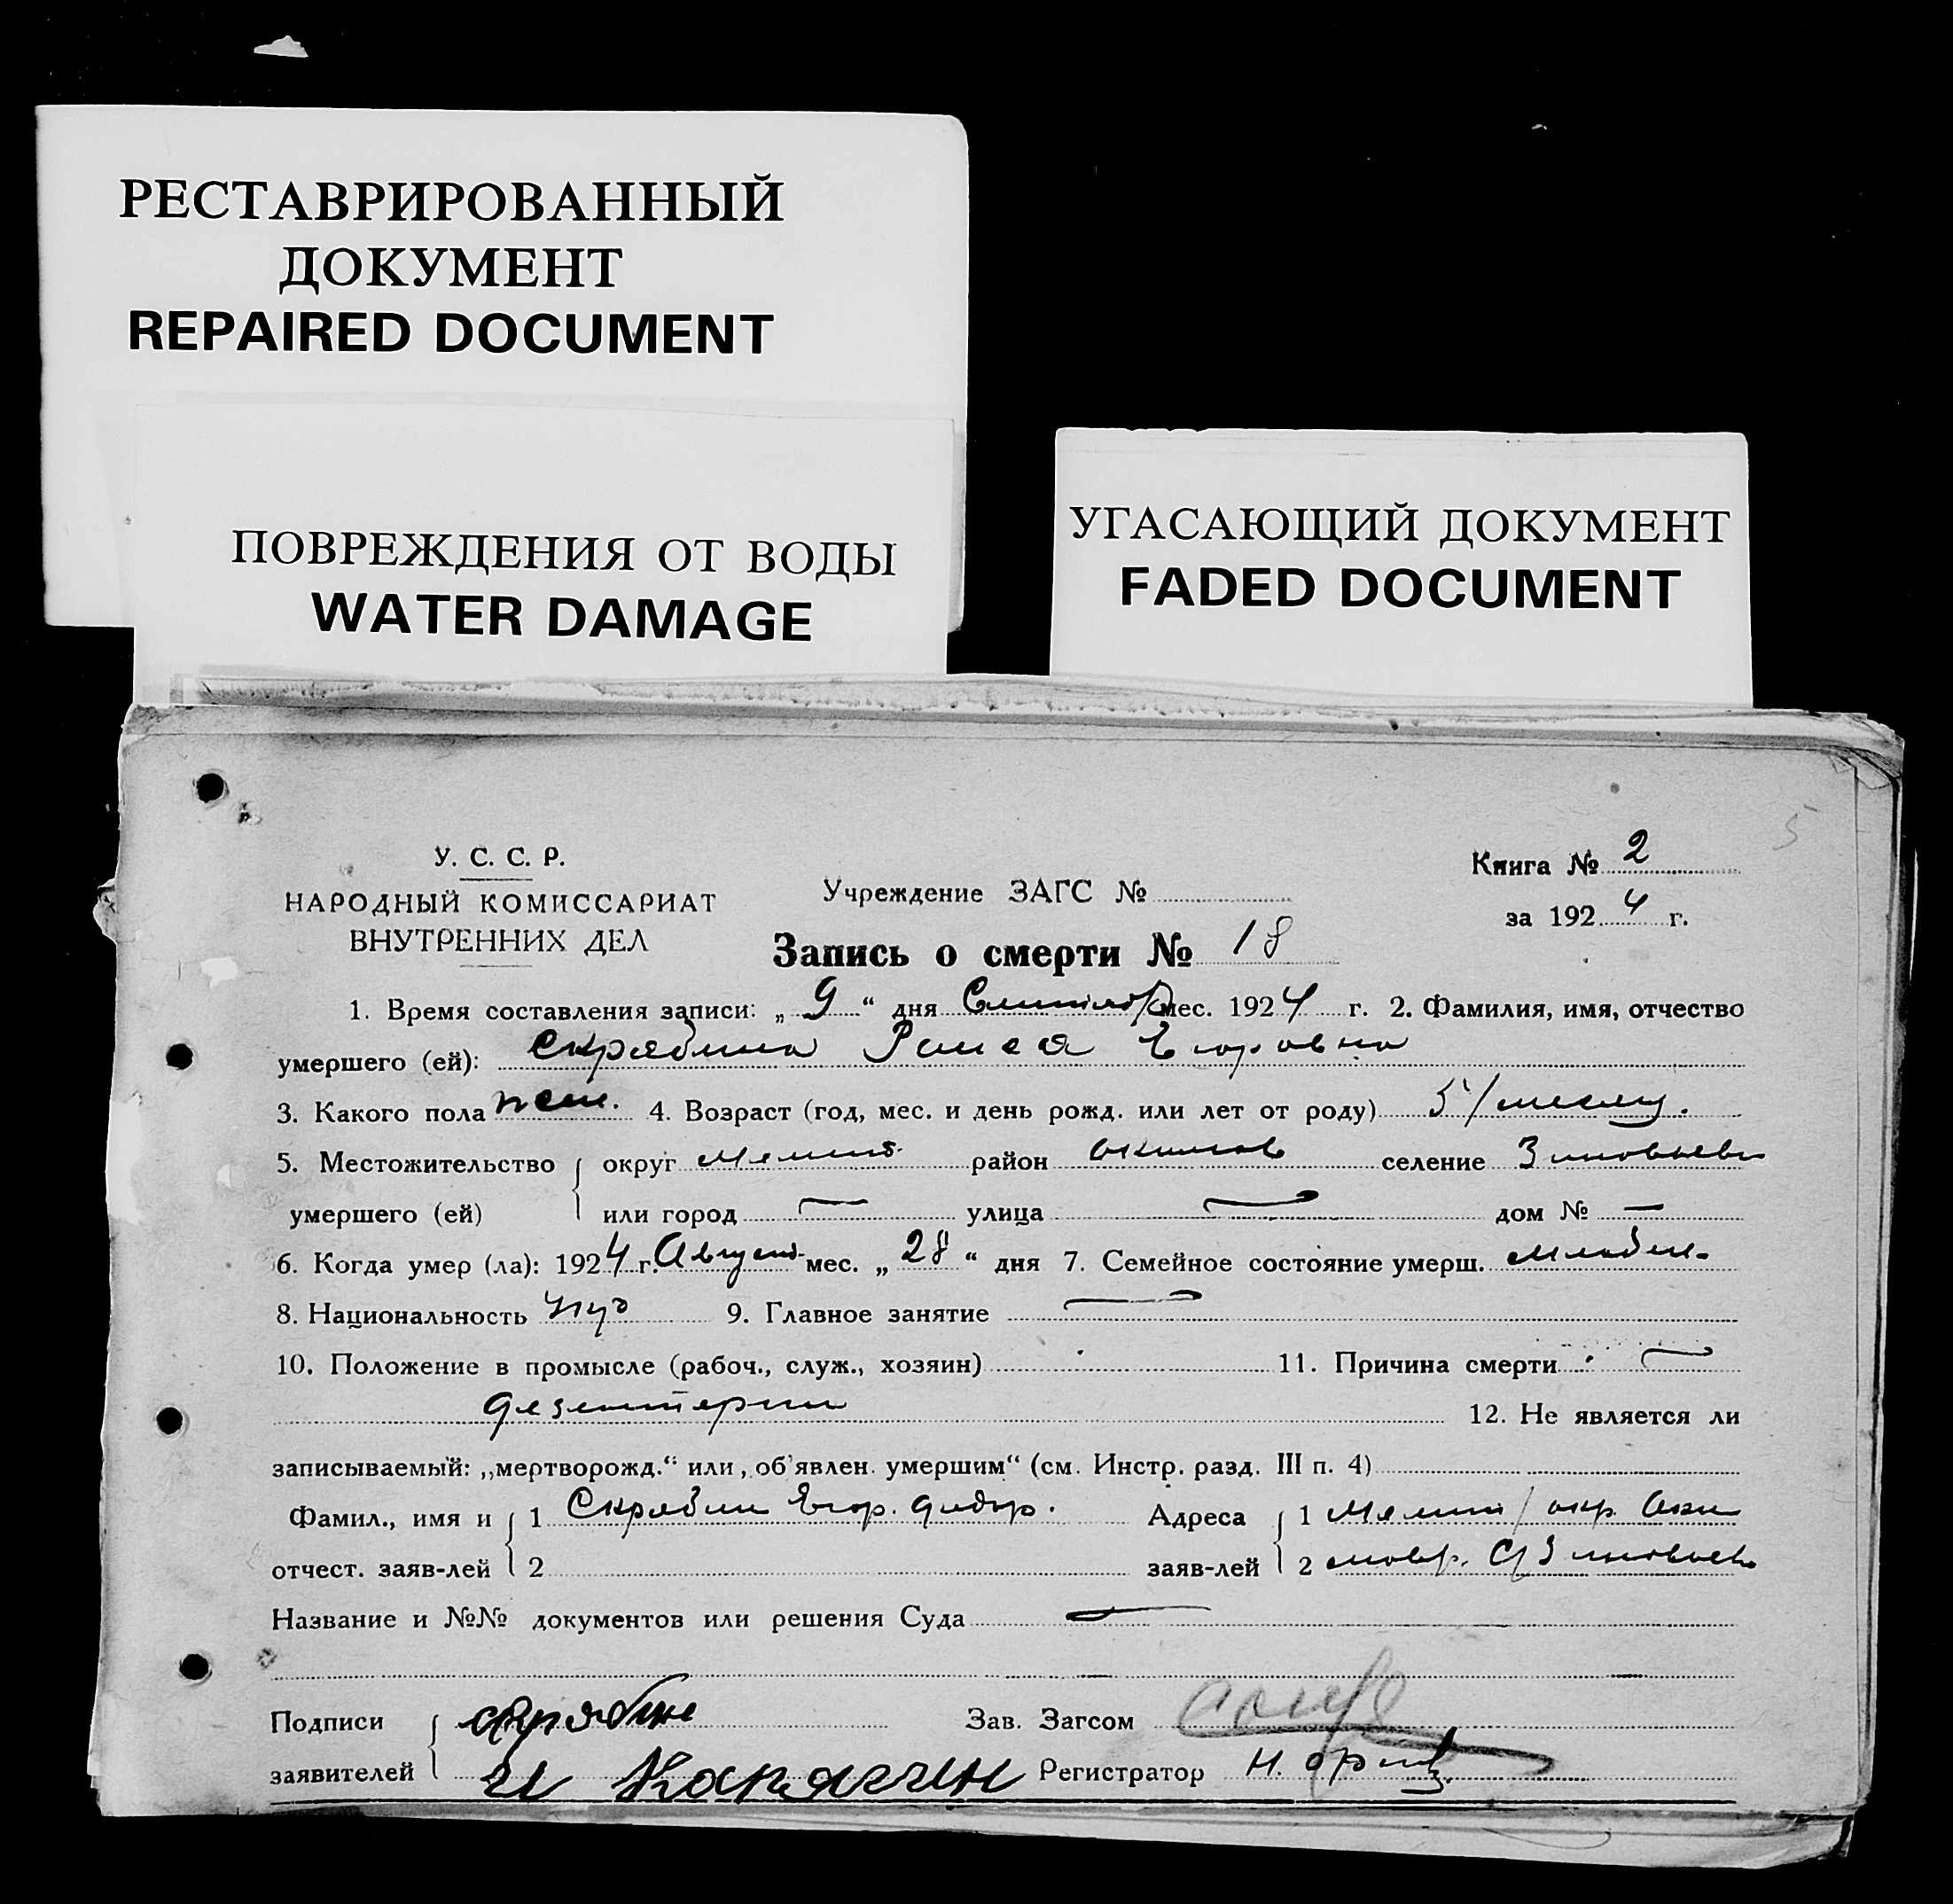 РЕСТАВРИРОВАННЫЙ
ДОКУМЕНТ
REPAIRED DOCUMENT
ПОВРЕЖДЕНИЯ ОТ ВОДЫ
WATER DAMAGE
УГАСАЮЩИЙ ДОКУМЕНТ
FADED DOCUMENT
5
У. С. С. Р.
НАРОДНЫЙ КОМИССАРИАТ
ВНУТРЕННИХ ДЕЛ
Учреждение ЗАГС №
Книга № 2
за 1924 г.
Запись о смерти № 18
1. Время составления записи: „9“ дня Сентябр мес. 1924 г. 2. Фамилия, имя, отчество
умершего (ей): Скрябина Раиса Егоровна
3. Какого пола жен. 4. Возраст (год, мес. и день рожд. или лет от роду) 5/месяц.
5. Местожительство округ Мелит. район Акимов селение Зиновьевк
умершего (ей) или город — улица — дом № —
6. Когда умер (ла): 1924 г. Август мес. „28“ дня 7. Семейное состояние умерш. младен.
8. Национальность 9. Главное занятие —
10. Положение в промысле (рабоч., служ., хозяин) 11. Причина смерти —
дезентерии 12. Не является ли
записываемый: „мертворожд.“ или „об'явлен. умершим“ (см. Инстр. разд. III п. 4)
Фамил., имя и 1 Скрябин Егор. Федор. Адреса 1 Мелит/окр. Аки
отчест. заяв-лей 2 заяв-лей 2 мовр. С/Зиновьевк
Название и №№ документов или решения Суда —
Подписи скрябин Зав. Загсом
заявителей и Карягин Регистратор Н.